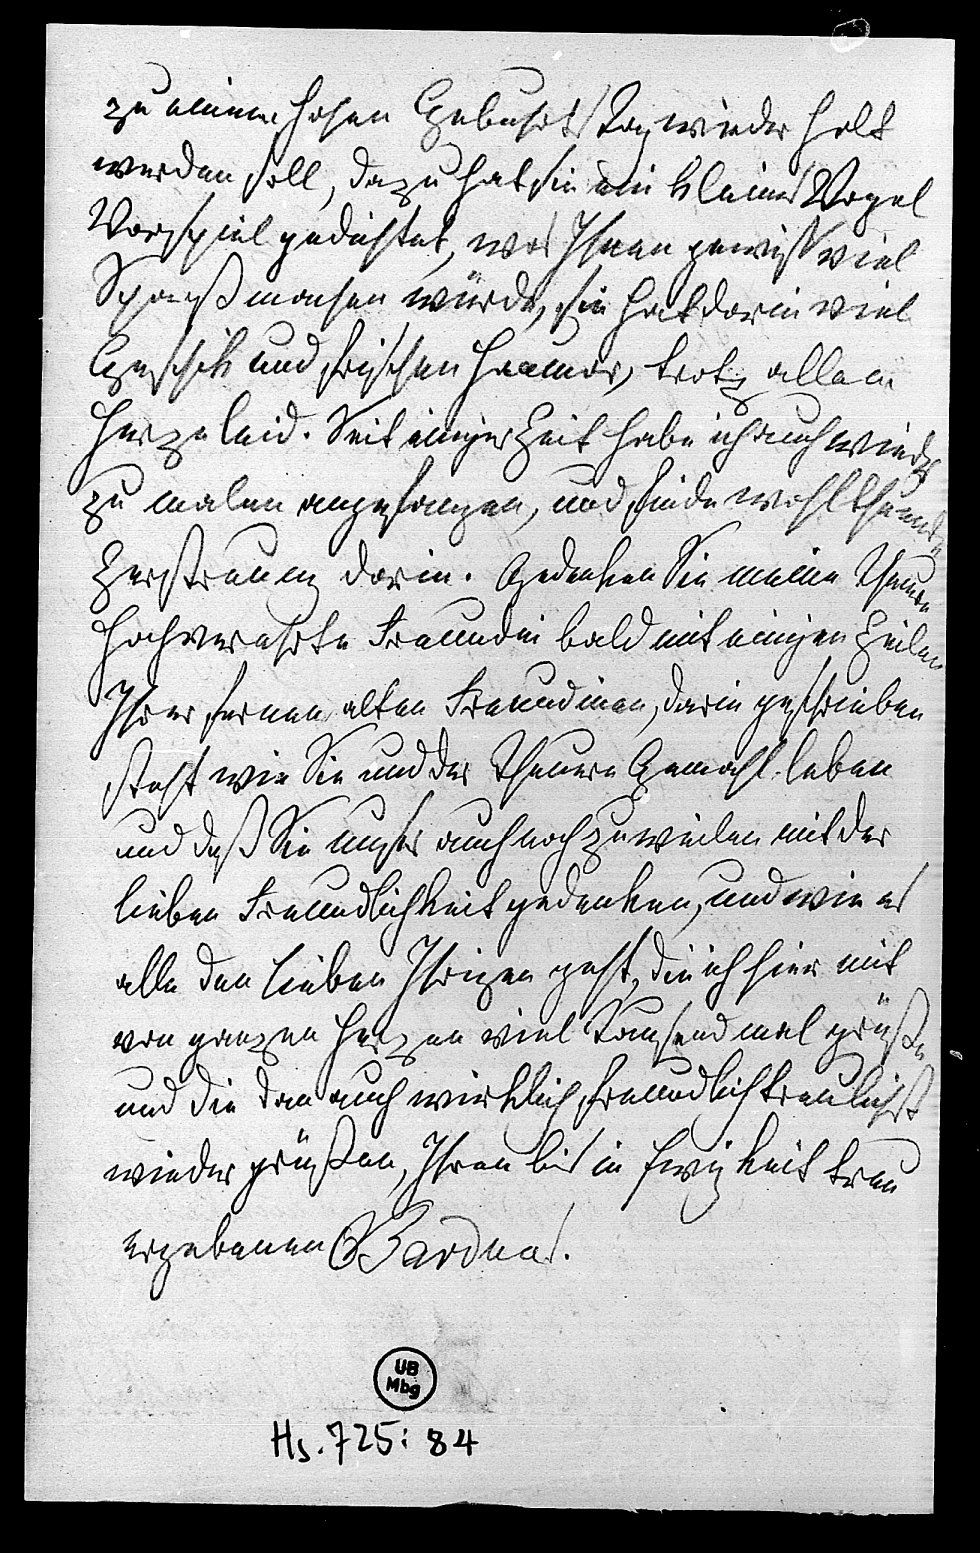 zu einem hohen Geburtstag wieder holt
werden soll, dazu hat sie ein kleines Vogel
Vorspiel gedichtet, was Ihnen gewiß viel
Spaß machen würde, sie hat darin viel
Geschik und frischen Humor, trotz allem
Herzeleid. Seit einiger Zeit habe ich auch wieder
zu malen angefangen, und finde wohlthuende
Zerstreuung darin. Gedenken Sie meine theure
hochverehrte Freundin bald mit einigen Zeilen
Ihrer fernen alten Freundinen, darin geschrieben
steht wie Sie und der theuere Gemahl leben
und daß Sie unser auch noch zuweilen mit der
lieben Freundlichkeit gedenken, und wie es
alle den lieben Ihrigen geht, die ich hier mit
von ganzen Herzen viel Tausend mal grüße
und die dan auch wirklich freundlich treulichst
wieder grüßen, Ihren bis in Ewigkeit treu
ergebenen Barduas.
UB
Mbg
Hs. 725: 84